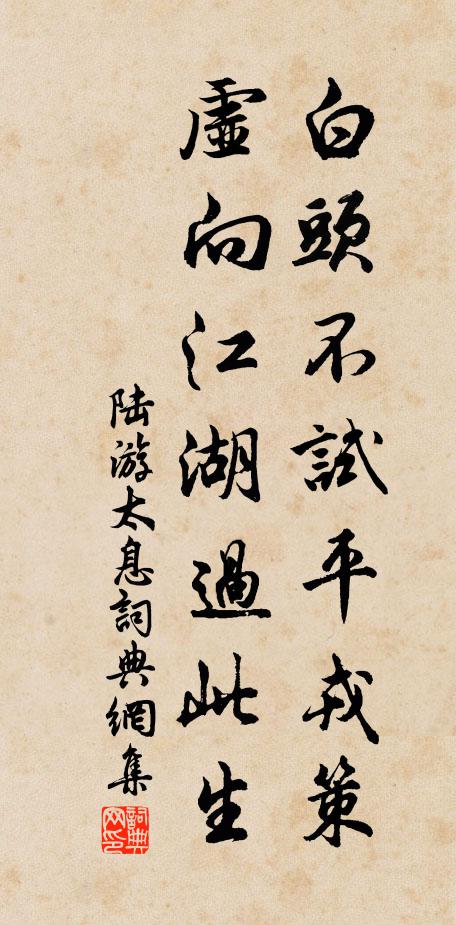 白頭不試平戎策
虛向江湖過此生
陆游太息詞典網集
詞典网印